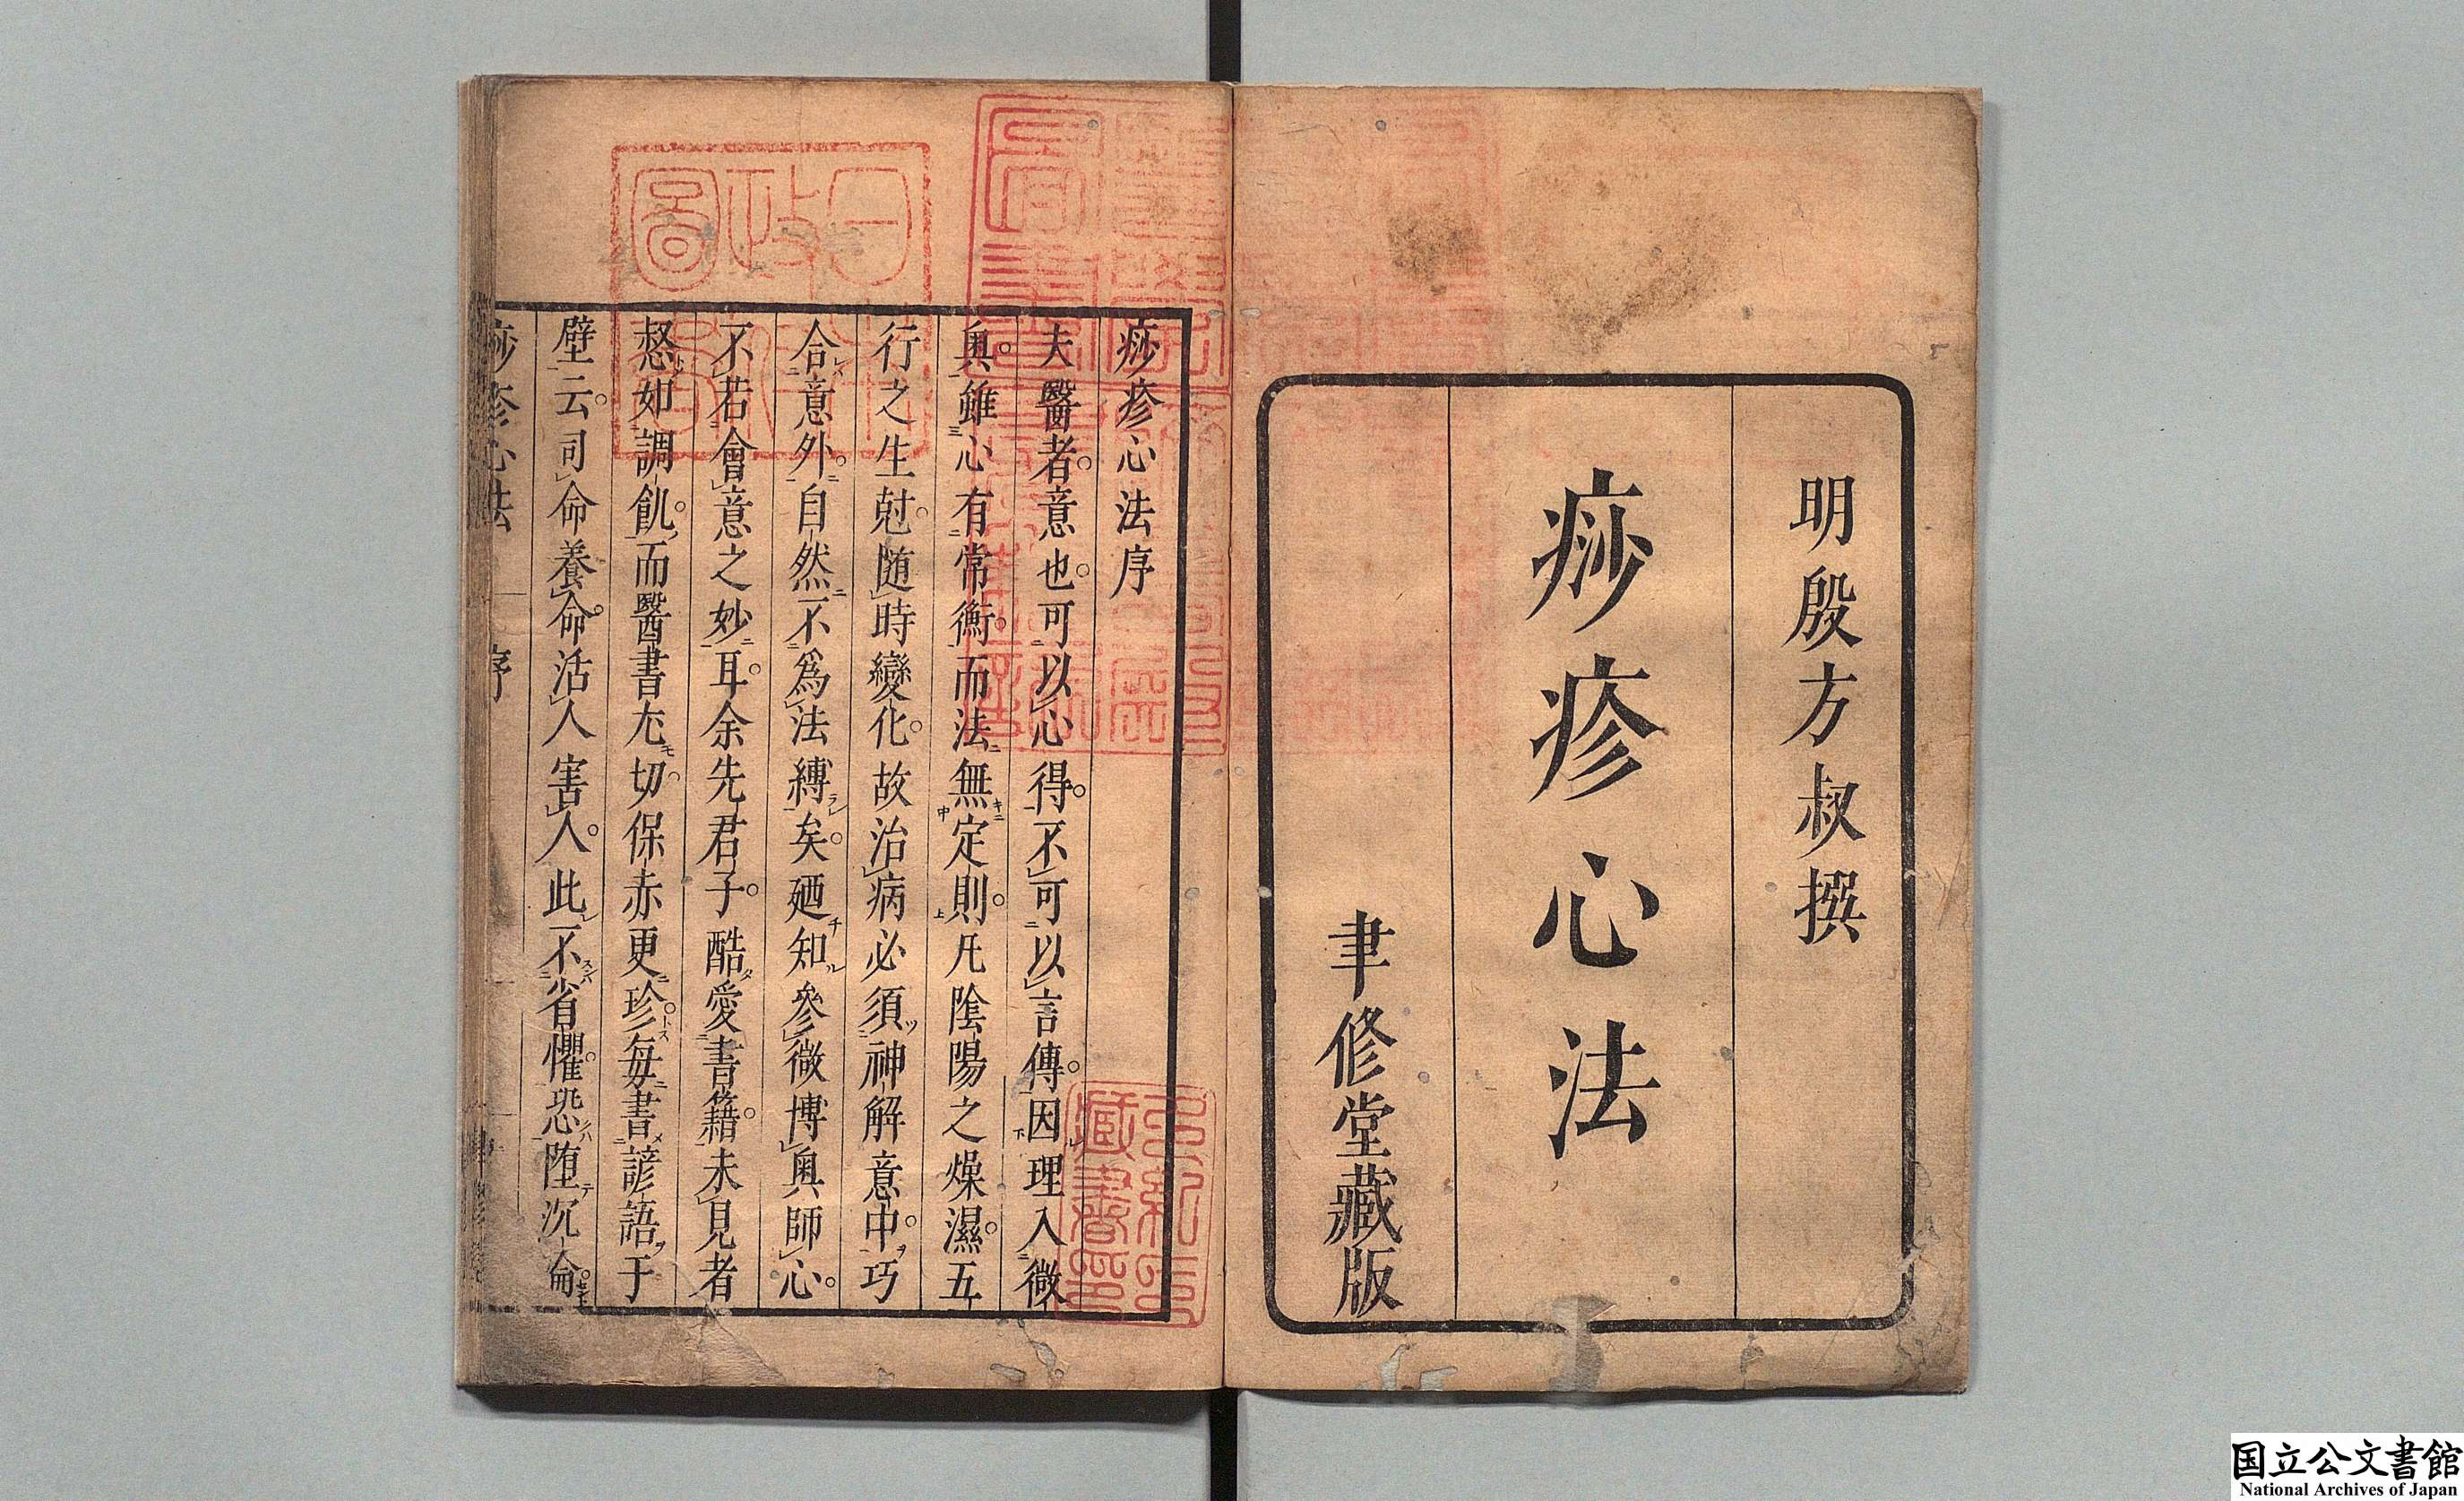 明殷方叔撰
痧疹心法
聿修堂藏版
痧疹心法序
夫醫者意也可以心得不可以言傳因理入微
奧雖心有常衡而法無定則凡陰陽之燥濕五
行之生尅隨時變化故治病必須神解意中巧
合意外自然不爲法縛矣廼知參微博奧師心
不若會意之妙耳余先君子酷愛書籍未見者
惄如調飢而醫書尤切保赤更珍每書諺語于
壁云司命養命活人害人此不省懼恐墮沉淪
痧疹心法 序
日本政府圖書
藏書印
国立公文書館
National Archives of Japan